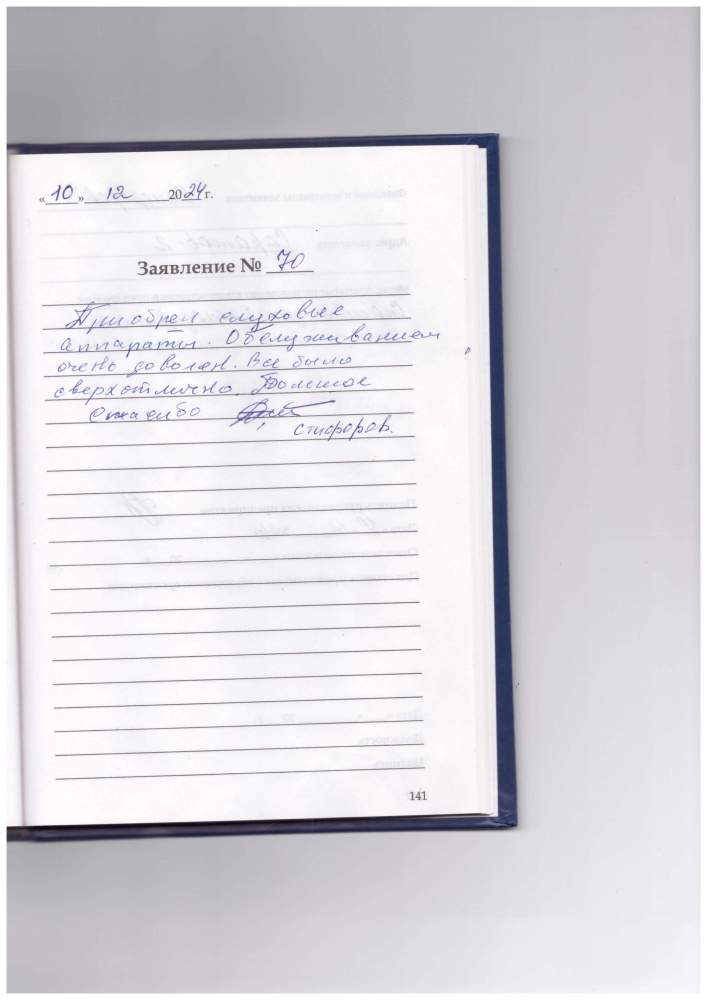 «10» 12 2024 г.
Заявление № 70
Приобрел слуховые
аппараты. Обслуживанием
очень доволен. Все было
сверхотлично. Большое
спасибо
141